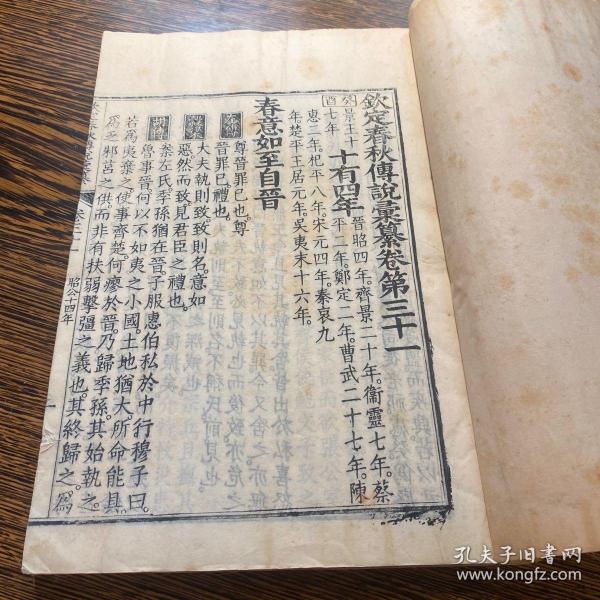 欽定春秋傳說彙纂卷第三十一
景王十七年
十有四年
晉昭四年。齊景二十年。衞靈七年。蔡
平二年。鄭定二年。曹武二十七年。陳
惠二年。杞平八年。宋元四年。秦哀九
年。楚平王居元年。吳夷末十六年。
春意如至自晉
尊晉罪已也。尊
晉罪已禮也。
大夫執則致致則名。意如
惡然而致見君臣之禮也。
案左氏。季孫猶在晉子服惠伯私於中行穆子曰。
魯事晉何以不如夷之小國。土地猶大。所命能具。
若爲夷棄之使事齊楚。何瘳於晉。乃歸季孫。其始執之。
爲之邾莒之供。而非有扶弱擊彊之義也。其終歸之。爲
卷三十一
昭公十四年
孔夫子旧书网
www.kongfz.com